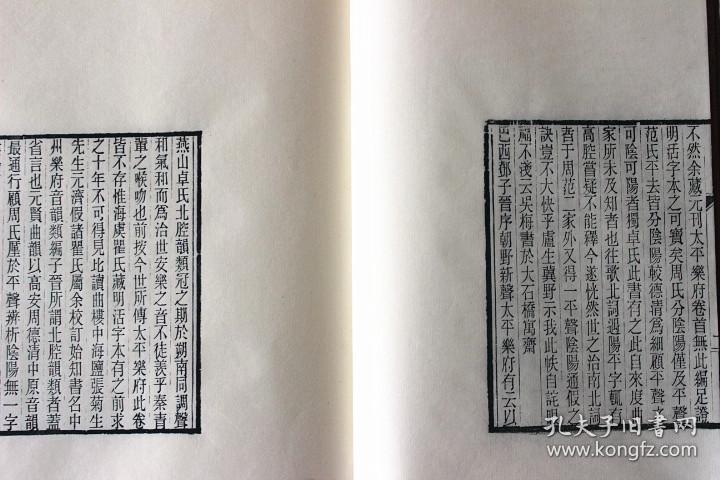 不然余藏元刊太平樂府卷首無此編足證
明活字本之可寶矣周氏分陰陽僅及平聲
范氏平去皆分陰陽較德清為細顧平聲之
可陰可陽者獨卓氏此書有之此自來度曲
家所未及知者也往歌北詞遇陽平字輒有
高腔嘗疑不能釋今遂恍然世之治南北詞
者于周范二家外又得一平聲陰陽通假之
訣豈不大快乎盧生冀野示我此帙自詫眼
福不淺云吳梅書於大石橋寓齋
巴西鄧子晉序朝野新聲太平樂府有云以
燕山卓氏北腔韻類冠之期於朔南同調聲
和氣和而為治世安樂之音不徒羨乎秦青
輩之喉吻也前按今世所傳太平樂府此卷
皆不存惟海虞瞿氏藏明活字本有之前求
之十年不可得見比讀曲樓中海鹽張菊生
先生元濟假諸瞿氏屬余校訂始知書名中
州樂府音韻類編子晉所謂北腔韻類者蓋
省言也元賢曲韻以高安周德清中原音韻
最通行顧周氏厪於平聲辨析陰陽無一字
二
孔夫子旧书网
www.kongfz.com